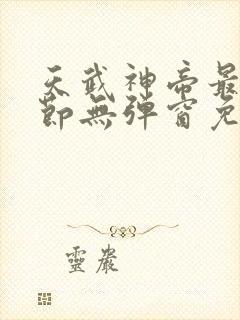 天武神帝最
節無彈窗免
靈巖